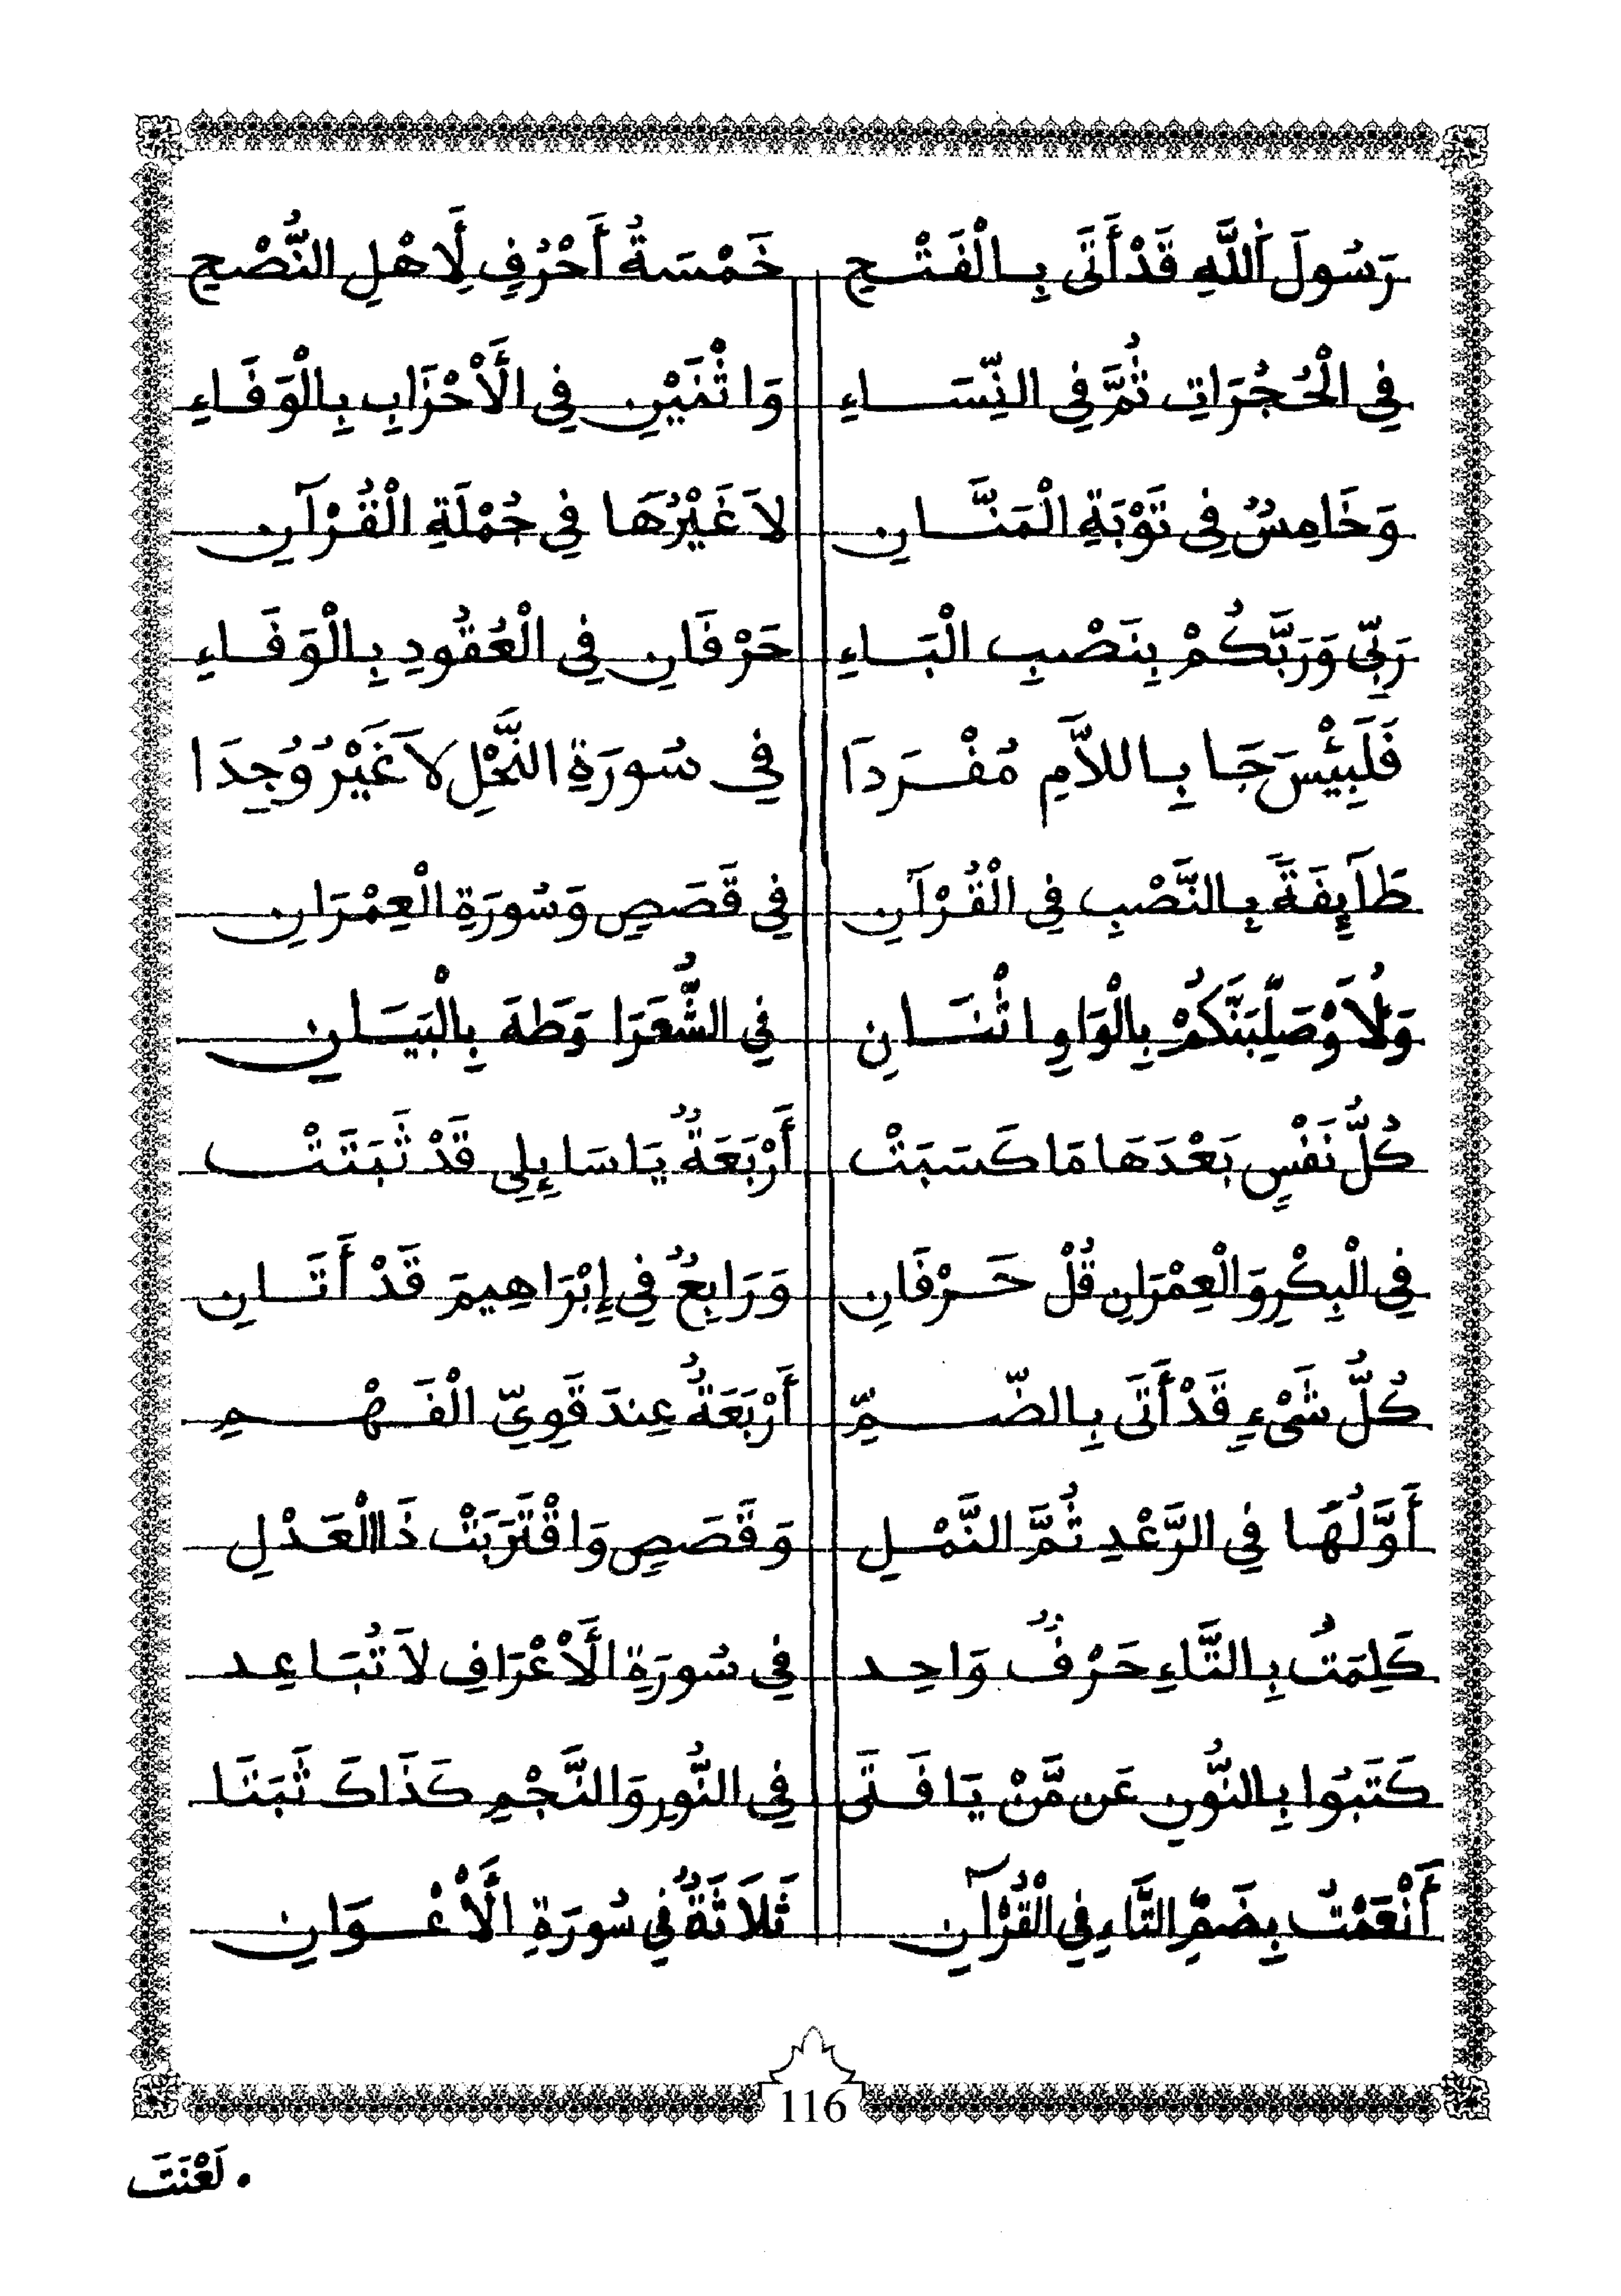 رَسُولَ اَللَّهِ قَدْ أَتَى بِالْفَتْحِ خَمْسَةُ أَحْرُفٍ لِأَهْلِ النُّصْحِ
فِي الْحُجُرَاتِ ثُمَّ فِي النِّسَاءِ وَاثْنَيْنِ فِي الْأَحْزَابِ بِالْوَفَاءِ
وَخَامِسٌ فِي تَوْبَةِ الْمَنَّانِ لَا غَيْرُهَا فِي جُمْلَةِ الْقُرْآنِ
رَبِّي وَرَبَّكُمْ بِنَصْبِ الْبَاءِ حَرْفَانِ فِي الْعُقُودِ بِالْوَفَاءِ
فَلَبِئْسَ جَا بِاللَّامِ مُفْرَدَا فِي سُورَةِ النَّحْلِ لَا غَيْرُ وُجِدَا
طَآيِفَةً بِالنَّصْبِ فِي الْقُرْآنِ فِي قَصَصٍ وَسُورَةِ الْعِمْرَانِ
وَلَأُوْصَلِّبَنَّكُمْ بِالْوَاوِ اثْنَانِ فِي الشُّعَرَا وَطَهَ بِالْبَيَانِ
كُلُّ نَفْسٍ بَعْدَهَا مَا كَسَبَتْ أَرْبَعَةٌ يَا سَايِلِي قَدْ ثَبَتَتْ
فِي الْبِكْرِ وَالْعِمْرَانِ قُلْ حَرْفَانِ وَرَابِعٌ فِي إِبْرَاهِيمَ قَدْ أَتَانِ
كُلُّ شَيْءٍ قَدْ أَتَى بِالضَّمِّ أَرْبَعَةٌ عِندَ قَوِيِّ الْفَهْمِ
أَوَّلُهَا فِي الرَّعْدِ ثُمَّ النَّمْلِ وَقَصَصٍ وَاقْتَرَبَتْ ذَا الْعَدْلِ
كَلِمَتُ بِالتَّاءِ حَرْفٌ وَاحِد فِي سُورَةِ الْأَعْرَافِ لَا تُبَاعِد
كَتَبُوا بِالنُّونِ عَن مَّنْ يَا فَتَى فِي النُّورِ وَالنَّجْمِ كَذَاكَ ثَبَتَا
أَنْعَمْتُ بِضَمِّ التَّاءِ فِي الْقُرْآنِ ثَلَاثَةٌ فِي سُورَةِ الْأَعْوَانِ
116
. لَعْنَتَ